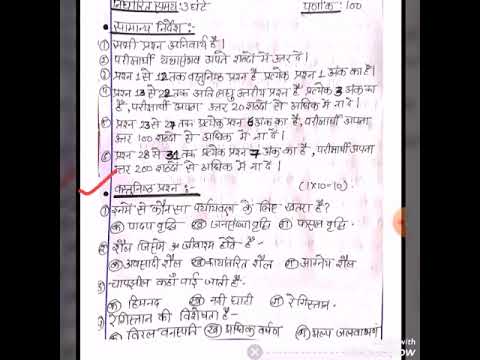 निर्धारित समय: 3 घंटे पूर्णांक: 100
• सामान्य निर्देश :-
① सभी प्रश्न अनिवार्य है।
② परीक्षार्थी यथासंभव अपने शब्दों में उत्तर दें।
③ प्रश्न 1 से 12 तक वस्तुनिष्ठ प्रश्न है प्रत्येक प्रश्न 1 अंक का है।
④ प्रश्न 13 से 22 तक अति लघु उत्तरीय प्रश्न है, प्रत्येक 3 अंक का
है, परीक्षार्थी अपना उत्तर 20 शब्दों से अधिक में ना दें।
प्रश्न 23 से 27 तक प्रत्येक प्रश्न 6 अंक का है, परीक्षार्थी अपना
उत्तर 100 शब्दों से अधिक में ना दें।
⑥ प्रश्न 28 से 31 तक प्रत्येक प्रश्न 7 अंक का है, परीक्षार्थी अपना
उत्तर 200 शब्दों से अधिक में ना दें।
• वस्तुनिष्ठ प्रश्न :- (1×10=10)
① इनमें से कौनसा पर्यावरण के लिए खतरा है?
क पादप वृद्धि ख जनसंख्या वृद्धि ग फसल वृद्धि
② शैल जिसमें जीवाश्म होते है -
क अवसादी शैल ख कायांतरित शैल ग आग्नेय शैल
③ चापझील कहाँ पाई जाती है.
क हिमनद ख नदी घाटी ग रेगिस्तान
रेगिस्तान की विशेषता है -
क विरल वनस्पति ख अधिक वर्षण ग अल्प जलवाष्पन